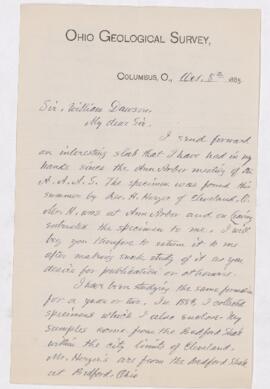 OHIO GEOLOGICAL SURVEY,
COLUMBUS, O., Oct. 5th 1885
Sir William Dawson,
My dear Sir,
I send forward
an interesting slab that I have had in my
hands since the Ann Arbor meeting of the
A.A.A.S. The specimen was found this
summer by Rev. H. Herzer of Cleveland, O.
H. was at Ann Arbor and on leaving
entrusted the specimen to me. I will
beg you therefore to return it to me
after making such study of it as you
desire for publication or otherwise.
I have been studying the same formation
for a year or two. In 1884, I collected
specimens which I also enclose. My
samples come from the Bedford Shale
within the city limits of Cleveland.
Mr. Herzer's are from the Bedford Shale
at Bedford. Ohio